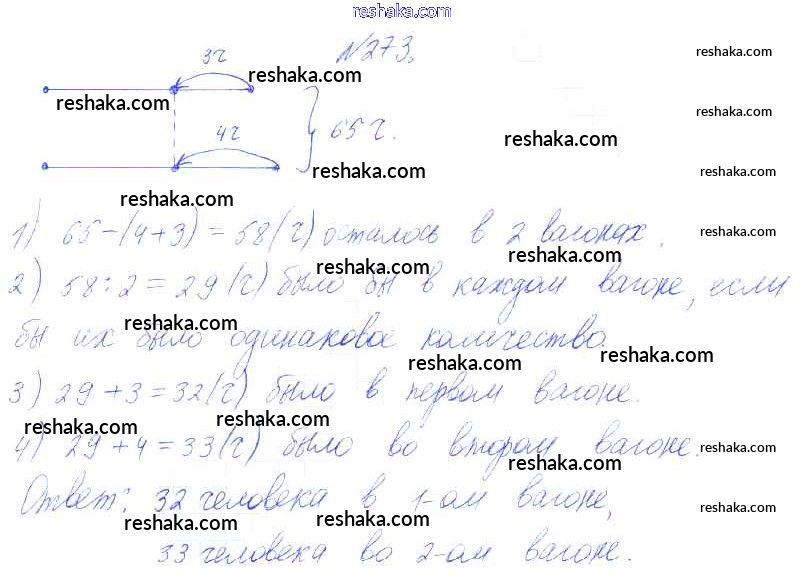 reshaka.com
№273.
reshaka.com
3ч
reshaka.com
reshaka.com
reshaka.com
4ч
65 ч.
reshaka.com
reshaka.com
reshaka.com
reshaka.com
1) 65-(4+3)=58(ч) осталось в 2 вагонах.
reshaka.com
reshaka.com
reshaka.com
2) 58:2=29(ч) было бы в каждом вагоне, если
reshaka.com
reshaka.com
бы их было одинаковое количество.
reshaka.com
reshaka.com
3) 29+3=32(ч) было в первом вагоне.
reshaka.com
reshaka.com
4) 29+4=33(ч) было во втором вагоне.
reshaka.com
reshaka.com
reshaka.com
Ответ: 32 человека в 1-ом вагоне,
reshaka.com
reshaka.com
reshaka.com
33 человека во 2-ом вагоне.
reshaka.com